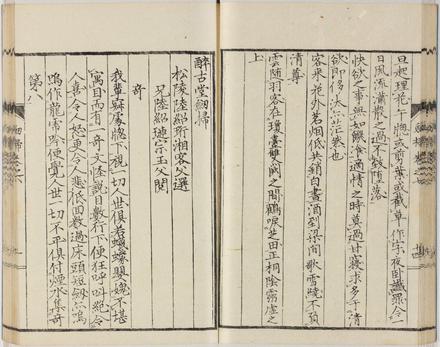 旦起理花午牕或剪葉或截草作字夜臥懺罪令一
日風流瀟散之過不致墮落
快欲之事無如饑飡適情之時莫過甘寢求多于清
欲即侈汰亦茫茫也
客來花外茗烟低共銷白晝酒到梁間歌雪繞不負
清尊
雲隨羽客在瓊臺雙闕之間鶴唳芝田正桐陰靈虛之
上
醉古堂劒掃
松陵陸紹珩湘客父選
兄陸紹璉宗玉父閱
奇
我輩寂處牕下視一切人世俱若蟻蠓嬰媿不堪
寓目而有一奇文怪說目數行下便狂呼叫絕令
人喜令人怒更令人悲低徊數過床頭短劒亦嗚
嗚作龍帝吟便覺人世一切不平俱付煙水集奇
第八